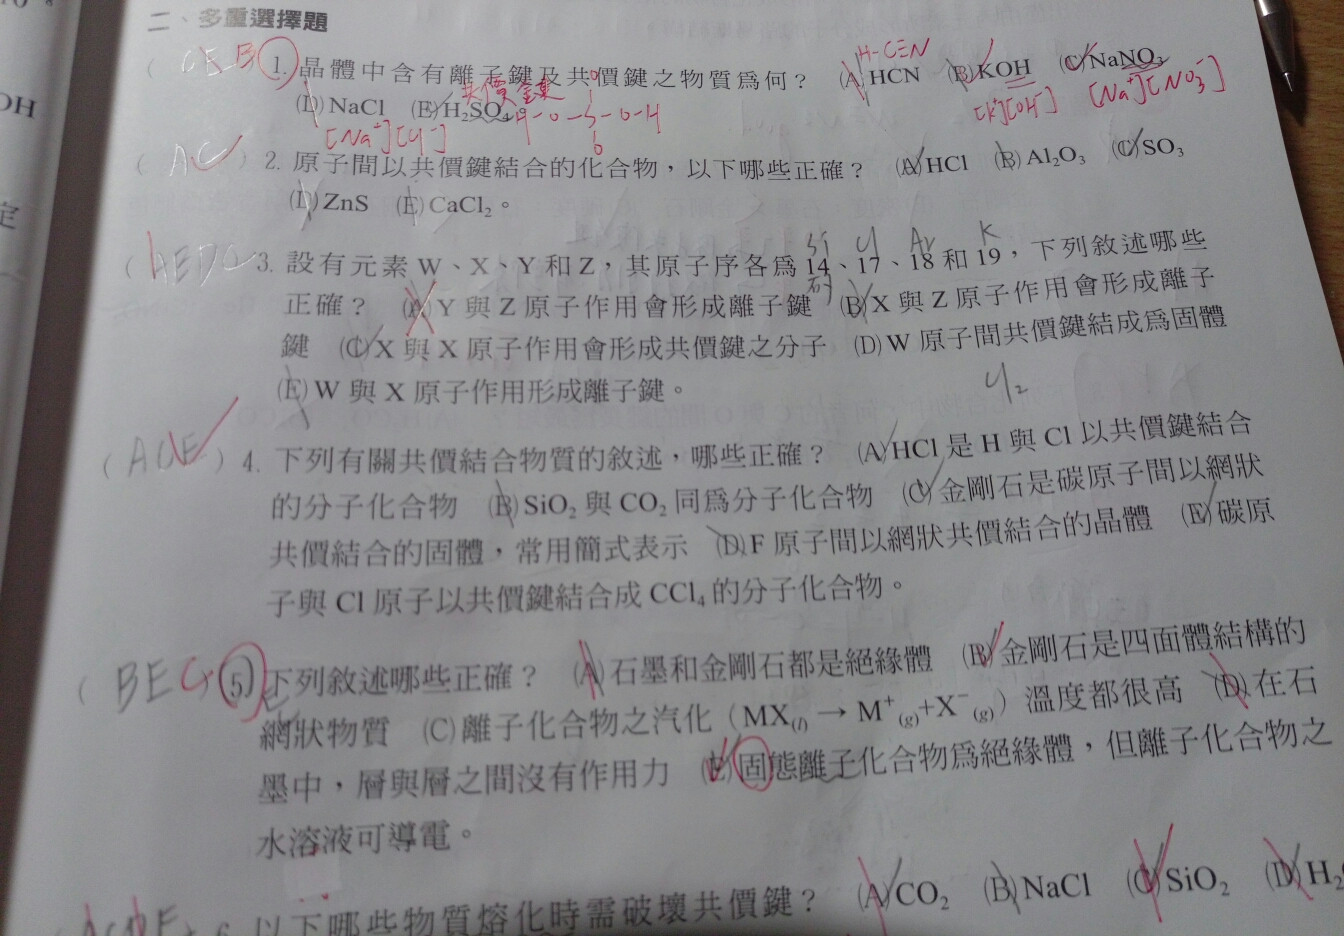 二、多重選擇題
1. 晶體中含有離子鍵及共價鍵之物質為何? (A) HCN (B) KOH (C) NaNO₃
(D) NaCl (E) H₂SO₄。
H-C≡N
共價鍵
[K⁺][OH⁻] [Na⁺][NO₃⁻]
[Na⁺][Cl⁻]
(AC) 2. 原子間以共價鍵結合的化合物,以下哪些正確? (A) HCl (B) Al₂O₃ (C) SO₃
(D) ZnS (E) CaCl₂。
Si Cl Ar K
3. 設有元素 W、X、Y 和 Z,其原子序各為 14、17、18 和 19,下列敘述哪些
正確? (A) Y 與 Z 原子作用會形成離子鍵 (B) X 與 Z 原子作用會形成離子
鍵 (C) X 與 X 原子作用會形成共價鍵之分子 (D) W 原子間共價鍵結成為固體
(E) W 與 X 原子作用形成離子鍵。
Cl₂
(ACE) 4. 下列有關共價結合物質的敘述,哪些正確? (A) HCl 是 H 與 Cl 以共價鍵結合
的分子化合物 (B) SiO₂ 與 CO₂ 同為分子化合物 (C) 金剛石是碳原子間以網狀
共價結合的固體,常用簡式表示 (D) F 原子間以網狀共價結合的晶體 (E) 碳原
子與 Cl 原子以共價鍵結合成 CCl₄ 的分子化合物。
(BEC) 5. 下列敘述哪些正確? (A) 石墨和金剛石都是絕緣體 (B) 金剛石是四面體結構的
網狀物質 (C) 離子化合物之汽化(MX₍l₎ → M⁺₍g₎+X⁻₍g₎)溫度都很高 (D) 在石
墨中,層與層之間沒有作用力 (E) 固態離子化合物為絕緣體,但離子化合物之
水溶液可導電。
6. 以下哪些物質熔化時需破壞共價鍵? (A) CO₂ (B) NaCl (C) SiO₂ (D) H₂